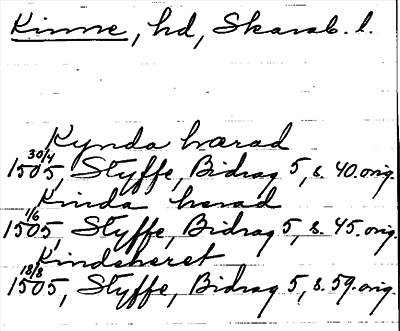 Kinne, hd, Skarab. l.
Kynda hærad
1505 30/4, Styffe, Bidrag 5, s. 40. orig.
Kinda herad
1505 1/6, Styffe, Bidrag 5, s. 45. orig.
Kindeheret
1505 18/8, Styffe, Bidrag 5, s. 59. orig.